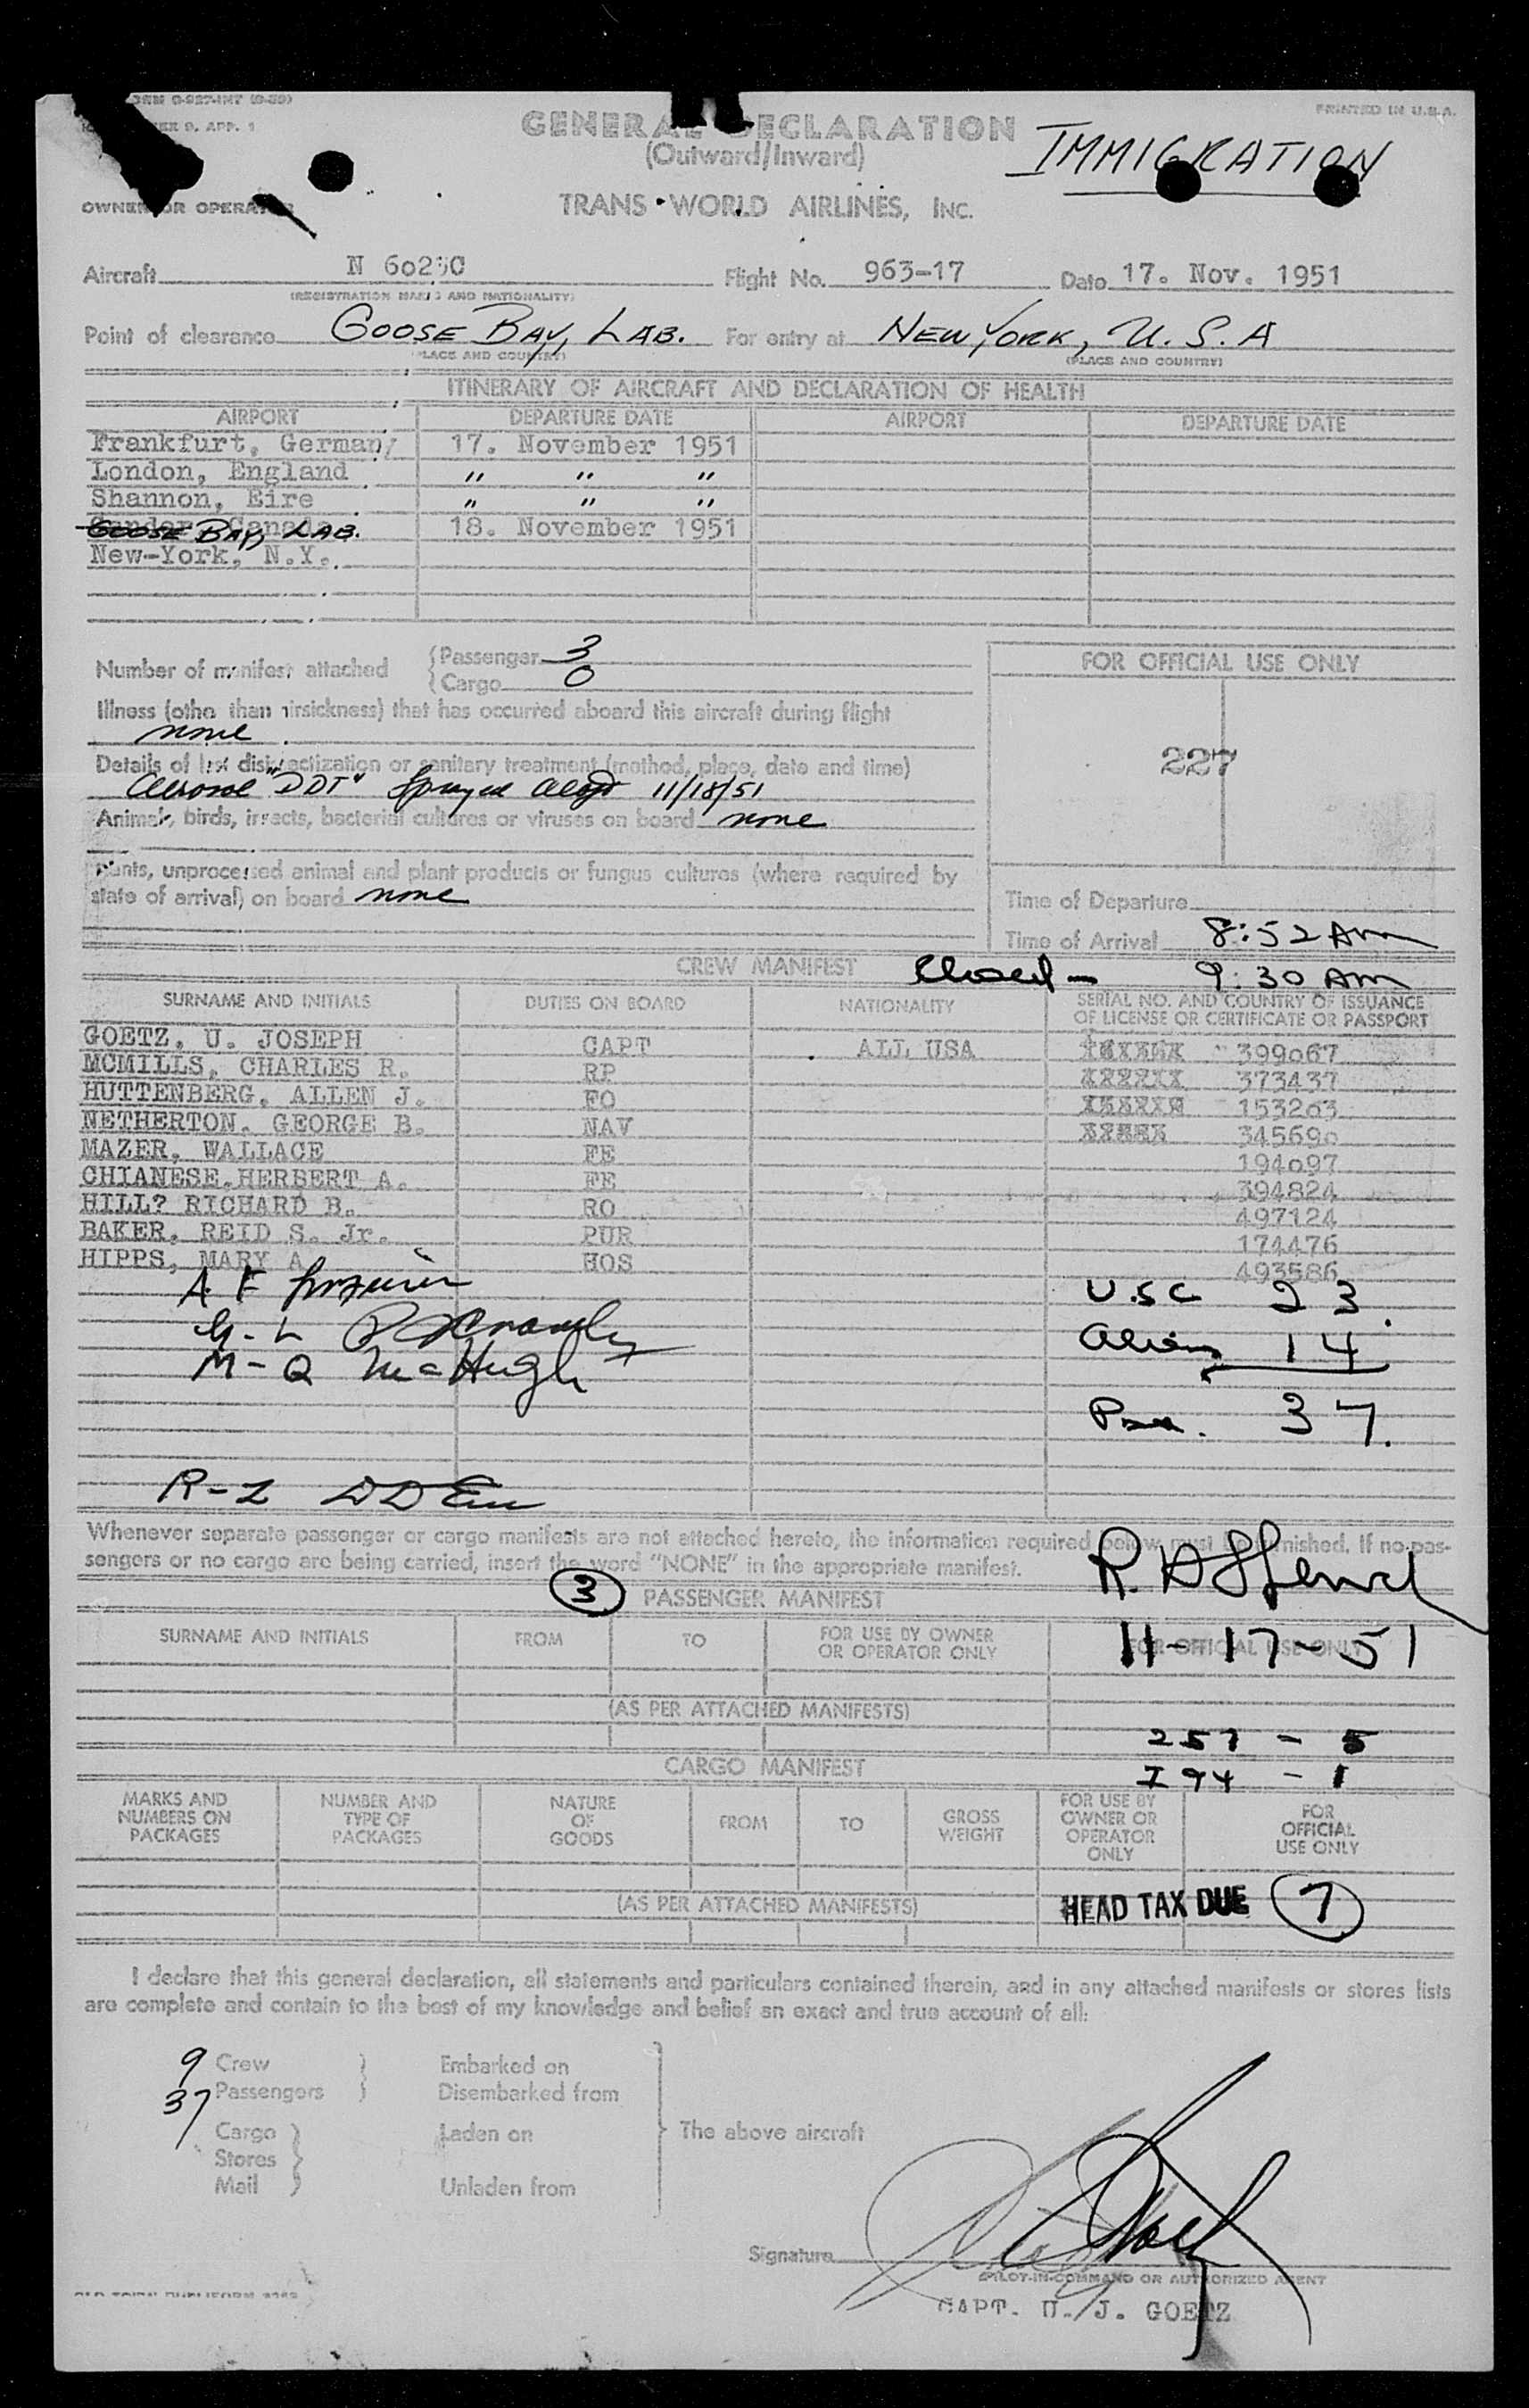 FORM O-927-INT
APP. 1
PRINTED IN U.S.A.
GENERAL DECLARATION
(Outward/Inward)
IMMIGRATION
OWNER OR OPERATOR
TRANS WORLD AIRLINES, INC.
Aircraft N 60230 Flight No. 963-17 Date 17. Nov. 1951
(REGISTRATION MARKS AND NATIONALITY)
Point of clearance GOOSE BAY, LAB. For entry at NEW YORK, U.S.A
(PLACE AND COUNTRY) (PLACE AND COUNTRY)
ITINERARY OF AIRCRAFT AND DECLARATION OF HEALTH
AIRPORT DEPARTURE DATE AIRPORT DEPARTURE DATE
Frankfurt, Germany 17. November 1951
London, England " " "
Shannon, Eire " " "
GOOSE BAY, LAB. 18. November 1951
New-York, N.Y.
Number of manifest attached {Passenger 3
{Cargo 0
FOR OFFICIAL USE ONLY
Illness (other than airsickness) that has occurred aboard this aircraft during flight
none
227
Details of last disinsectization or sanitary treatment (method, place, date and time)
Aerosol "DDT" Sprayed aloft 11/18/51
Animals, birds, insects, bacterial cultures or viruses on board none
Plants, unprocessed animal and plant products or fungus cultures (where required by
state of arrival) on board none
Time of Departure
Time of Arrival 8:52 Am
CREW MANIFEST Closed - 9:30 AM
SURNAME AND INITIALS DUTIES ON BOARD NATIONALITY SERIAL NO. AND COUNTRY OF ISSUANCE
OF LICENSE OR CERTIFICATE OR PASSPORT
GOETZ, U. JOSEPH CAPT ALL USA 399067
MCMILLS, CHARLES R. RP 373437
HUTTENBERG, ALLEN J. FO 153263
NETHERTON, GEORGE B. NAV 345690
MAZER, WALLACE FE 194097
CHIANESE, HERBERT A. FE 394824
HILL? RICHARD B. RO 497124
BAKER, REID S. Jr. PUR 174476
HIPPS, MARY A HOS 493586
A. F
U.SC 23.
G-L
Aliens 14
M-Q McHugh
Pax. 37.
R-Z
Whenever separate passenger or cargo manifests are not attached hereto, the information required below must be furnished. If no pas-
sengers or no cargo are being carried, insert the word "NONE" in the appropriate manifest.
3 PASSENGER MANIFEST
SURNAME AND INITIALS FROM TO FOR USE BY OWNER
OR OPERATOR ONLY FOR OFFICIAL USE ONLY
11-17-51
(AS PER ATTACHED MANIFESTS)
257 - 5
CARGO MANIFEST
I 94 - 1
MARKS AND
NUMBERS ON
PACKAGES
NUMBER AND
TYPE OF
PACKAGES
NATURE
OF
GOODS
FROM
TO
GROSS
WEIGHT
FOR USE BY
OWNER OR
OPERATOR
ONLY
FOR
OFFICIAL
USE ONLY
(AS PER ATTACHED MANIFESTS)
HEAD TAX DUE 7
I declare that this general declaration, all statements and particulars contained therein, and in any attached manifests or stores lists
are complete and contain to the best of my knowledge and belief an exact and true account of all:
9 Crew } Embarked on
37 Passengers } Disembarked from
Cargo } Laden on The above aircraft
Stores
Mail } Unladen from
Signature
PILOT-IN-COMMAND OR AUTHORIZED AGENT
CAPT. U. J. GOETZ